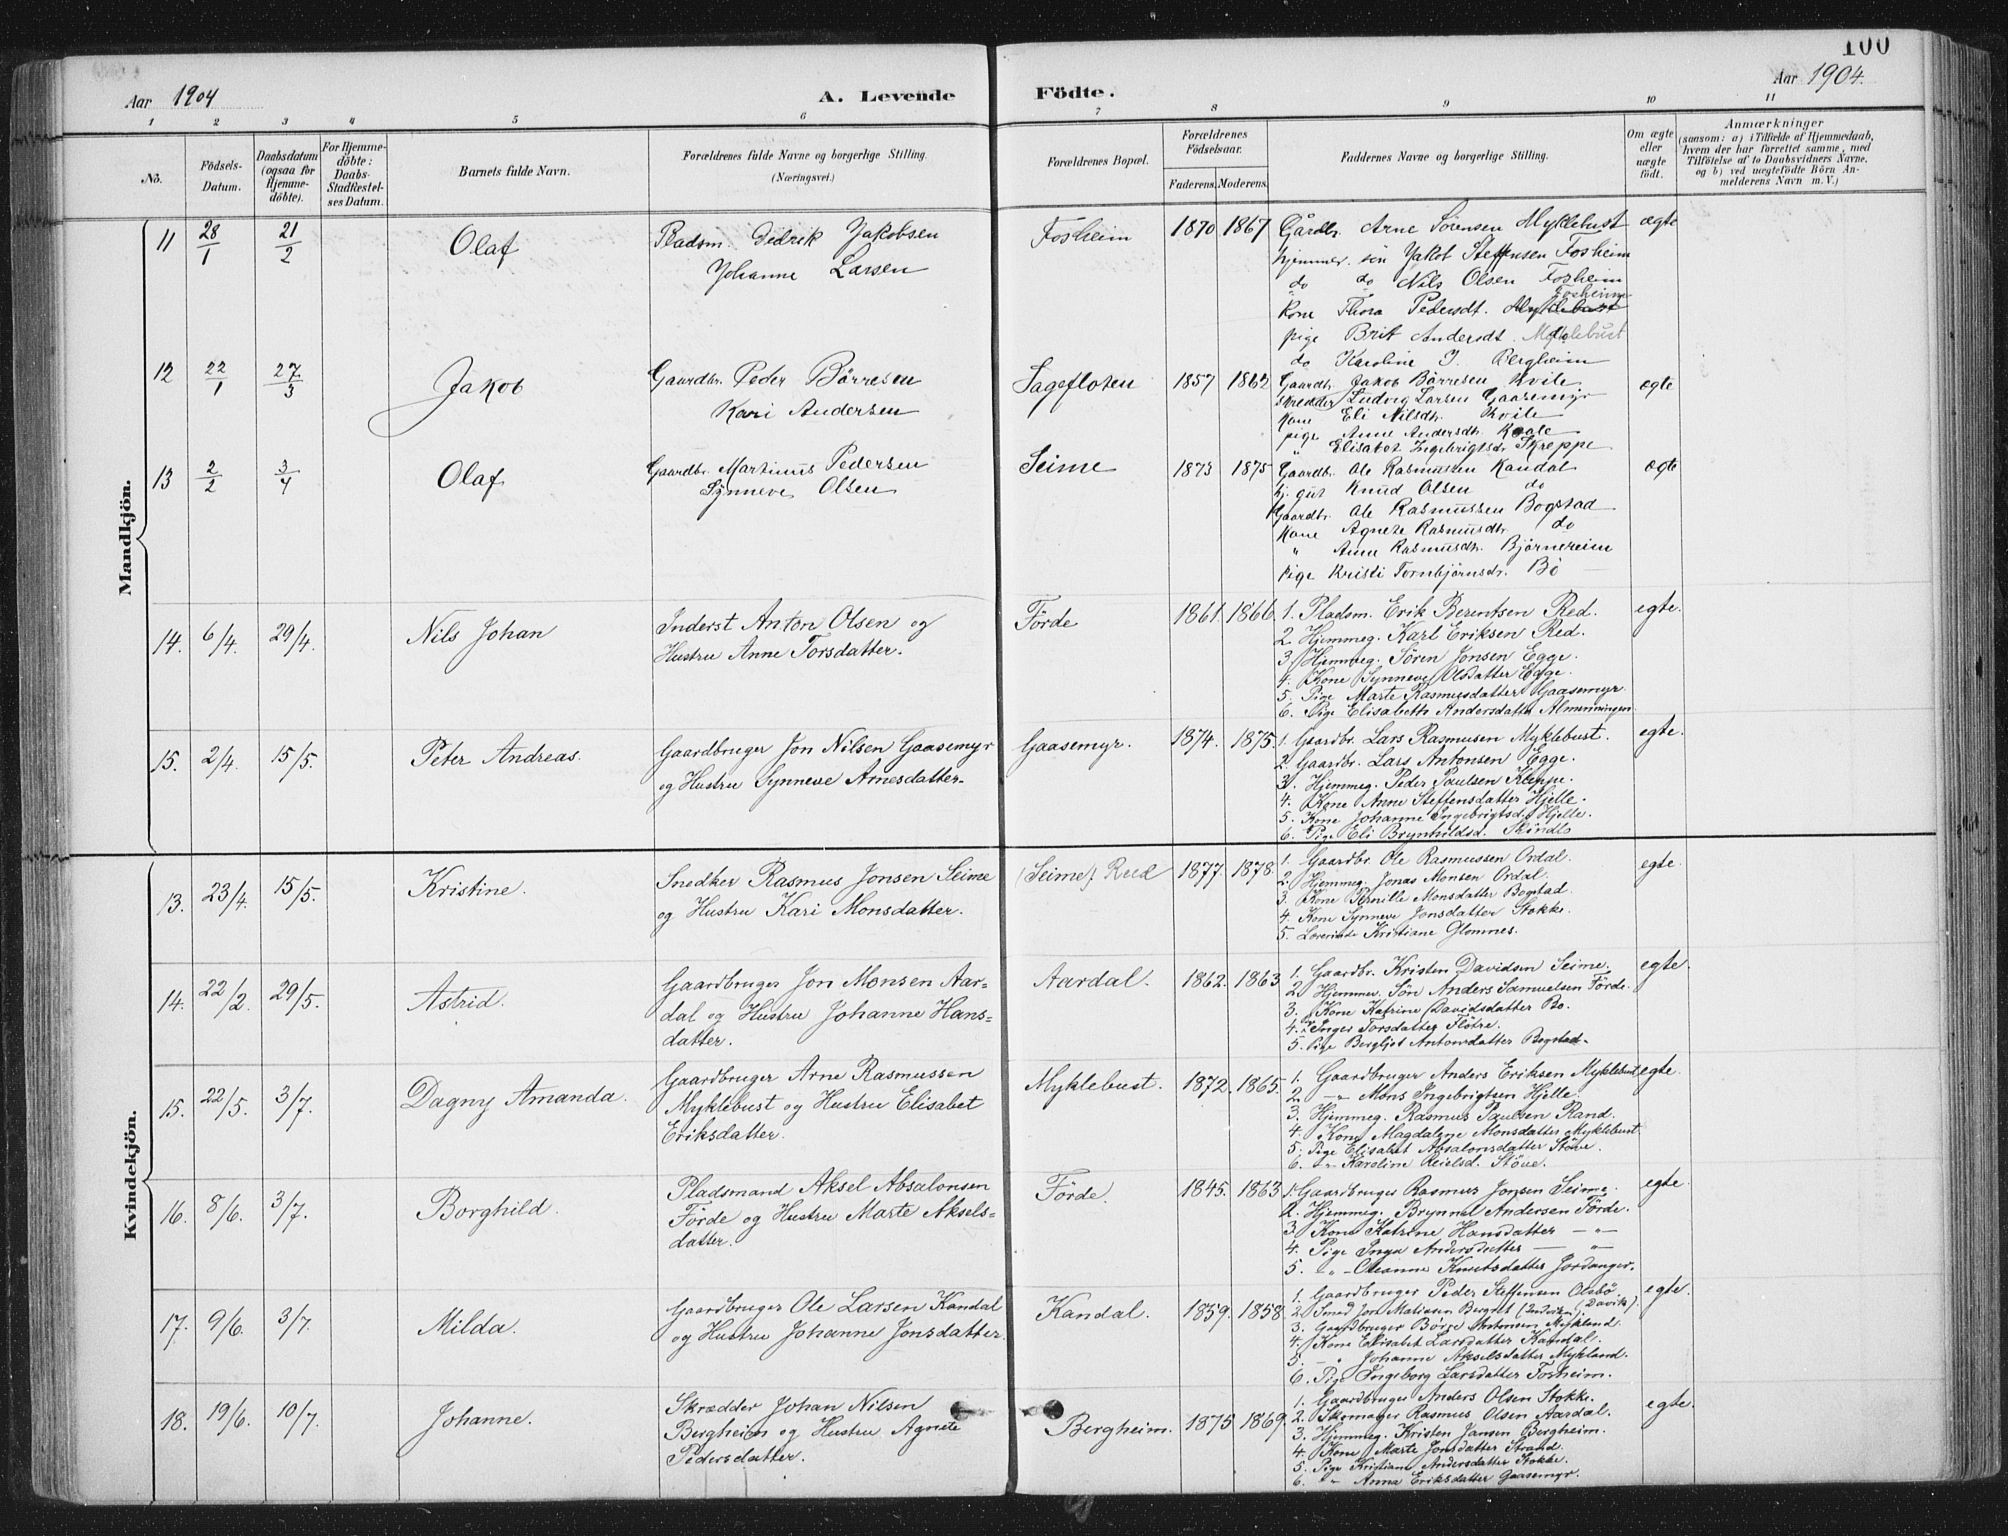 100
Aar 1904
A. Levende Födte.
Aar 1904.
1 2 3 4 5 6 7 8 9 10 11
No.
Födsels-Datum.
Daabsdatum (ogsaa for Hjemme-döbte).
For Hjemme-döbte: Daabs-Stadfæstel-ses Datum.
Barnets fulde Navn.
Forældrenes fulde Navne og borgerlige Stilling. (Næringsvei.)
Forældrenes Bopæl.
Forældrenes Födselsaar.
Faderens. Moderens.
Faddernes Navne og borgerlige Stilling.
Om ægte eller uægte födt.
Anmærkninger
(saasom: a) i Tilfælde af Hjemmedaab, hvem der har forrettet samme, med Tilföielse af to Daabsvidners Navne, og b) ved uægtefödte Börn An-melderens Navn m. V.)
Mandkjön.
11 28/1 21/2 Olaf
Pladsm. Didrik Jakobsen
Johanne Larsen
Fosheim 1870 1867
Gårdbr. Arne Sørensen Myklebust ægte
hjemmev. søn Jakob Steffensen Fosheim
do do Nils Olsen Fosheim
Fosheim
Kone Thora Pedersdt. Myklebust
pige Brit Andersdt. Myklebust
do Karoline J. Bergheim
12 22/1 27/3 Jakob
Gaardbr. Peder Börresen
Kari Andersen
Sagefloten 1857 1862
Gaardbr. Jakob Börresen Hvile ægte
Skrædder Ludvig Larsen Gaasemyr
Kone Eli Nilsdtr. Hvile
pige Anne Andersdtr.
" Elisabet Ingebrigtsdr. Skreppe
13 2/2 3/4 Olaf
Gaardbr. Martinus Pedersen
Synneve Olsen
Seime 1873 1875
Gaardbr. Ole Rasmussen Kandal ægte
hj. gut Knud Olsen do
Gaardbr. Ole Rasmussen Bogstad
Kone Agnete Rasmusdtr. do
" Anne Rasmusdtr. Björnereim
Pige Kristi Tornbjörnsdr. Bö
14. 6/4. 29/4. Nils Johan
Inderst Anton Olsen og
Hustru Anne Torsdatter.
Förde 1861. 1866.
1. Pladsm. Erik Berentsen Red. egte.
2. Hjemmeg. Karl Eriksen Red.
3. Hjemmeg. Sören Jonsen Egge.
4. Kone Synneve Olsdatter Egge.
5. Pige Marte Rasmusdatter Gaasemyr.
6. Pige Elisabeth Andersdatter Almenningen
15. 2/4. 15/5. Peter Andreas.
Gaardbruger Jon Nilsen Gaasemyr
og Hustru Synneve Arnesdatter.
Gaasemyr. 1874. 1875.
1. Gaardbr. Lars Rasmusen Myklebust. egte.
2. Gaardbr. Lars Antonsen Egge.
3. Hjemmeg. Peder Paulsen
4. Kone Anne Steffensdatter Hjelle.
5. Kone Johanne Ingebrigtsd. Hjelle.
6. Pige Eli Brynhildsd.
Kvindekjön.
13. 23/4. 15/5. Kristine.
Snedker Rasmus Jonsen Seime
og Hustru Kari Monsdatter.
(Seime) Reed 1877. 1878.
1. Gaardbr. Ole Rasmussen Ordal. egte.
2. Hjemmeg. Jonas Monsen Ordal.
3. Kone Pernille Monsdatter Bogstad.
4. Kone Synneve Jonsdatter Stokke.
5. Lærerinde Kristiane Glomnes.
14. 22/2. 29/5. Astrid.
Gaardbruger Jon Monsen Aar-
dal og Hustru Johanne Hans-
datter.
Aardal. 1862. 1863
1. Gaardbr. Kristen Davidsen Seime. egte.
2. Hjemmev. Sön Anders Samuelsen Förde.
3. Kone Katrine Davidsdatter Bo.
4. " Inger Torsdatter Flötre.
5. Pige Bergljot Antonsdatter Bogstad.
15. 22/5. 3/7. Dagny Amanda.
Gaardbruger Arne Rasmussen
Myklebust og Hustru Elisabet
Eriksdatter.
Myklebust. 1872. 1865.
1. Gaardbruger Anders Eriksen Myklebust egte.
2. -"- Mons Ingebrigtsen Hjelle.
3. Hjemmeg. Rasmus Paulsen Rand.
4. Kone Magdalene Monsdatter Myklebust.
5. Pige Elisabet Absalonsdatter Stöve.
6. -"- Karoline Reielsd. Stöve.
16. 8/6. 3/7. Borghild.
Pladsmand Aksel Absalonsen
Förde og Hustru Marte Aksels-
datter.
Förde. 1845. 1863
1. Gaardbruger Rasmus Jonsen Seime. egte.
2. Hjemmeg. Brynnel Andersen Förde.
3. Kone Katrine Hansdatter -"-
4. Pige Inga Andersdatter -"-
5. -"- Oleanne Knutsdatter Jordanger.
17. 9/6. 3/7. Milda.
Gaardbruger Ole Larsen Kandal
og Hustru Johanne Jonsdatter.
Kandal. 1859. 1858.
1. Gaardbruger Peder Steffensen Olsbö. egte.
2. Smed Jon Matiasen Berget (Indviken) (Davik).
3. Gaardbruger Börre Antonsen Mykland.
4. Kone Elisabet Larsdatter Kandal.
5. -"- Johanne Akselsdatter Mykland.
6. Pige Ingeborg Larsdatter Fosheim.
18. 19/6. 10/7. Johanne.
Skrædder Johan Nilsen
Bergheim og Hustru Agnete
Pedersdatter.
Bergheim. 1875 1869.
1. Gaardbruger Anders Olsen Stokke. egte.
2. Skomager Rasmus Olsen Aardal.
3. Hjemmeg. Kristen Jansen Bergheim.
4. Kone Marte Jonsdatter Strand.
5. Pige Kristiane Andersdatter Stokke.
6. -"- Anna Eriksdatter Gaasemyr.